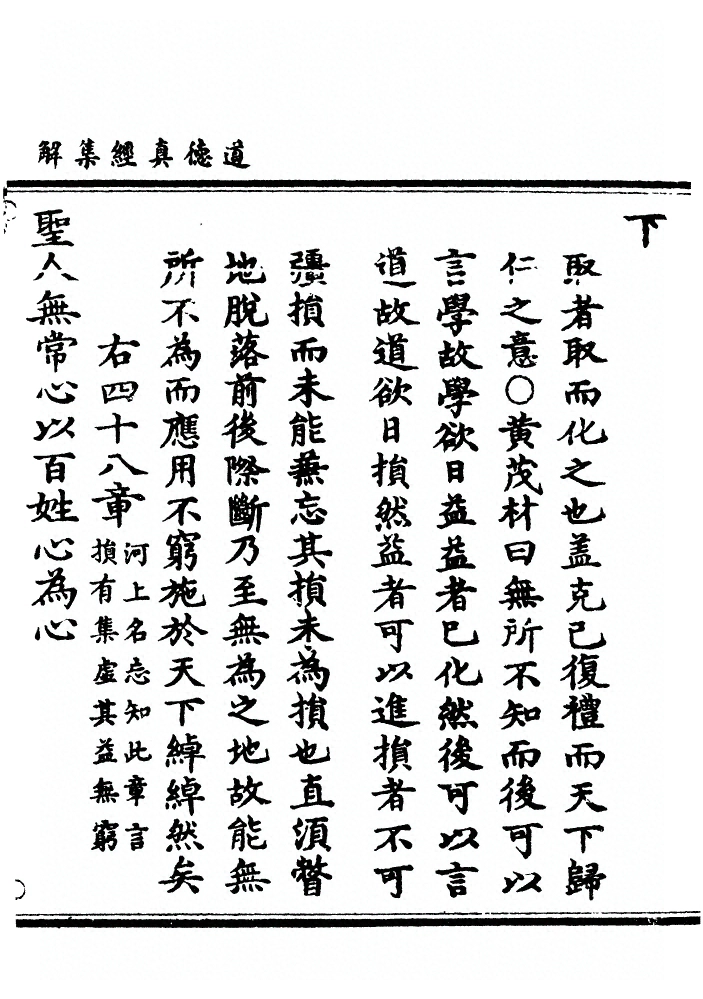 道德真經集解
下
取者取而化之也盖克己復禮而天下歸
仁之意○黄茂材曰無所不知而後可以
言學故學欲日益益者巳化然後可以言
道故道欲日損然益者可以進損者不可
彊損而未能兼忘其損未為損也直須瞥
地脫落前後際斷乃至無為之地故能無
所不為而應用不窮施於天下綽綽然矣
右四十八章
河上名忘知此章言
損有集虛其益無窮
聖人無常心以百姓心為心